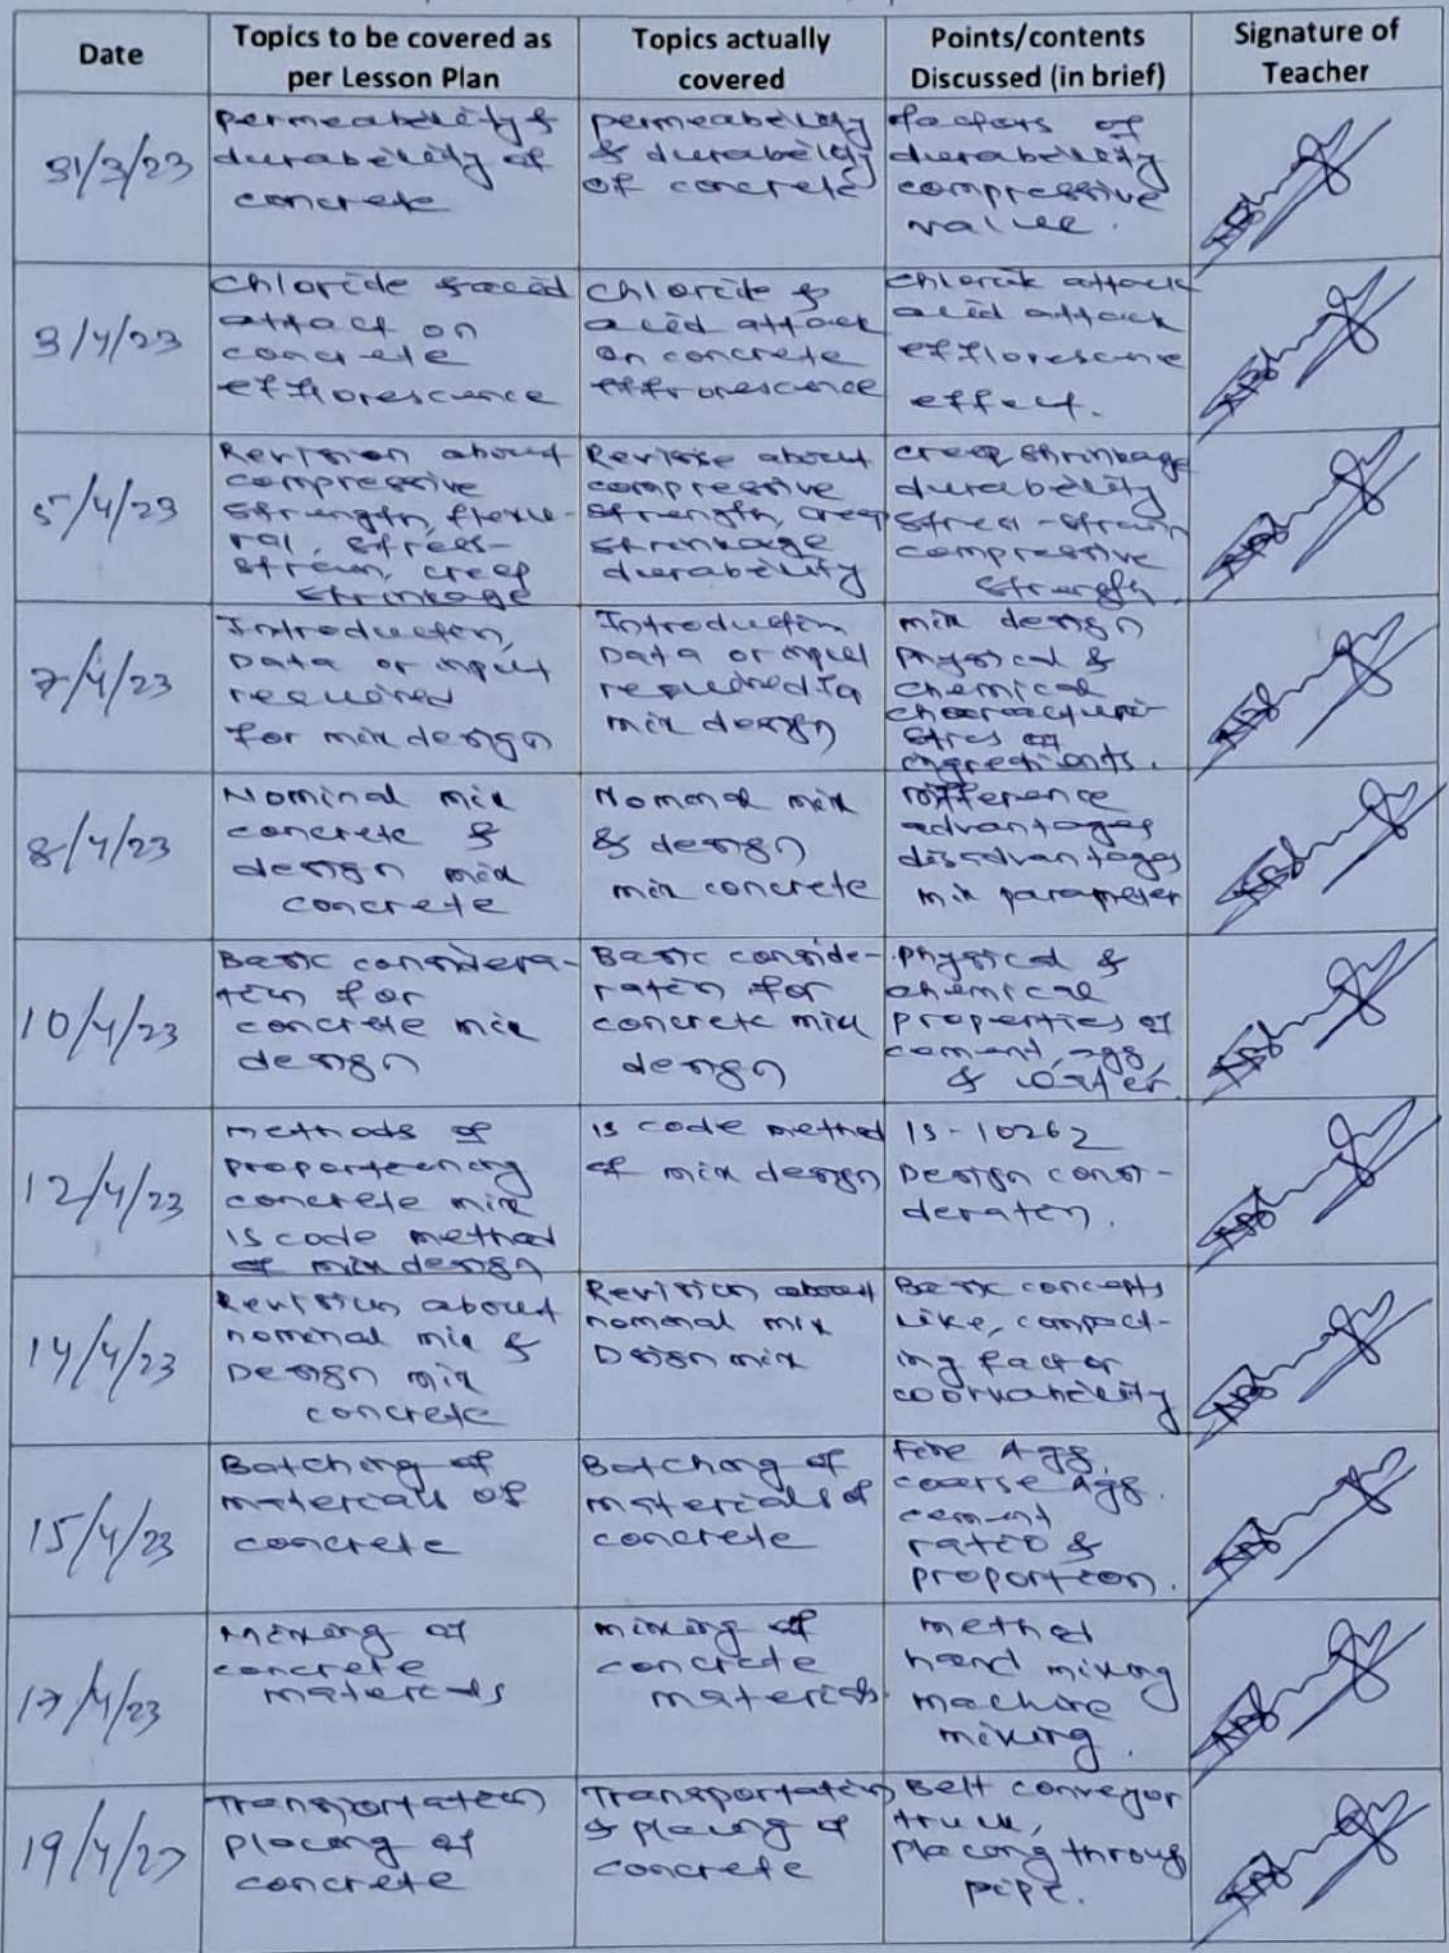 Date
Topics to be covered as
per Lesson Plan
Topics actually
covered
Points/contents
Discussed (in brief)
Signature of
Teacher
31/3/23
permeability &
durability of
concrete
permeability
& durability
of concrete
factors of
durability
compressive
value.
3/4/23
Chloride & acid
attact on
concrete
efflorescence
Chloride &
acid attack
on concrete
efflorescence
attack
acid attack
efflorescence
effect.
5/4/23
Revision about
compressive
strength, flexu-
ral, stress-
strain, creep
shrinkage
Revise about
compressive
strength, creep
shrinkage
durability
creep shrinkage
durability
stress-strain
compressive
strength,
7/4/23
Introduction,
Data or input
required
for mix design
Introduction
Data or input
required for
mix design
mix design
physical &
chemical
characteri-
stics of
ingredients.
8/4/23
Nominal mix
concrete &
design mix
concrete
Nominal mix
& design
mix concrete
Difference
advantages
disadvantages
mix parameter
10/4/23
Basic considera-
tion for
concrete mix
design
Basic conside-
ration for
concrete mix
design
physical &
chemical
properties of
cement, agg
& water.
12/4/23
methods of
proportioning
concrete mix
is code method
of mix design
is code method
of mix design
IS-10262
Design consi-
deration.
14/4/23
Revision about
nominal mix &
Design mix
concrete
Revision about
nominal mix
Design mix
Basic concepts
like, compact-
ing factor
15/4/23
Batching of
materials of
concrete
Batching of
materials of
concrete
Fine Agg,
coarse Agg.
cement
ratio &
proportion.
17/4/23
Mixing of
concrete
materials
mixing of
concrete
materials.
method
hand mixing
machine
mixing.
19/4/23
Transportation
placing of
concrete
Transportation
& placing of
concrete
Belt conveyor
truck,
placing through
pipe.